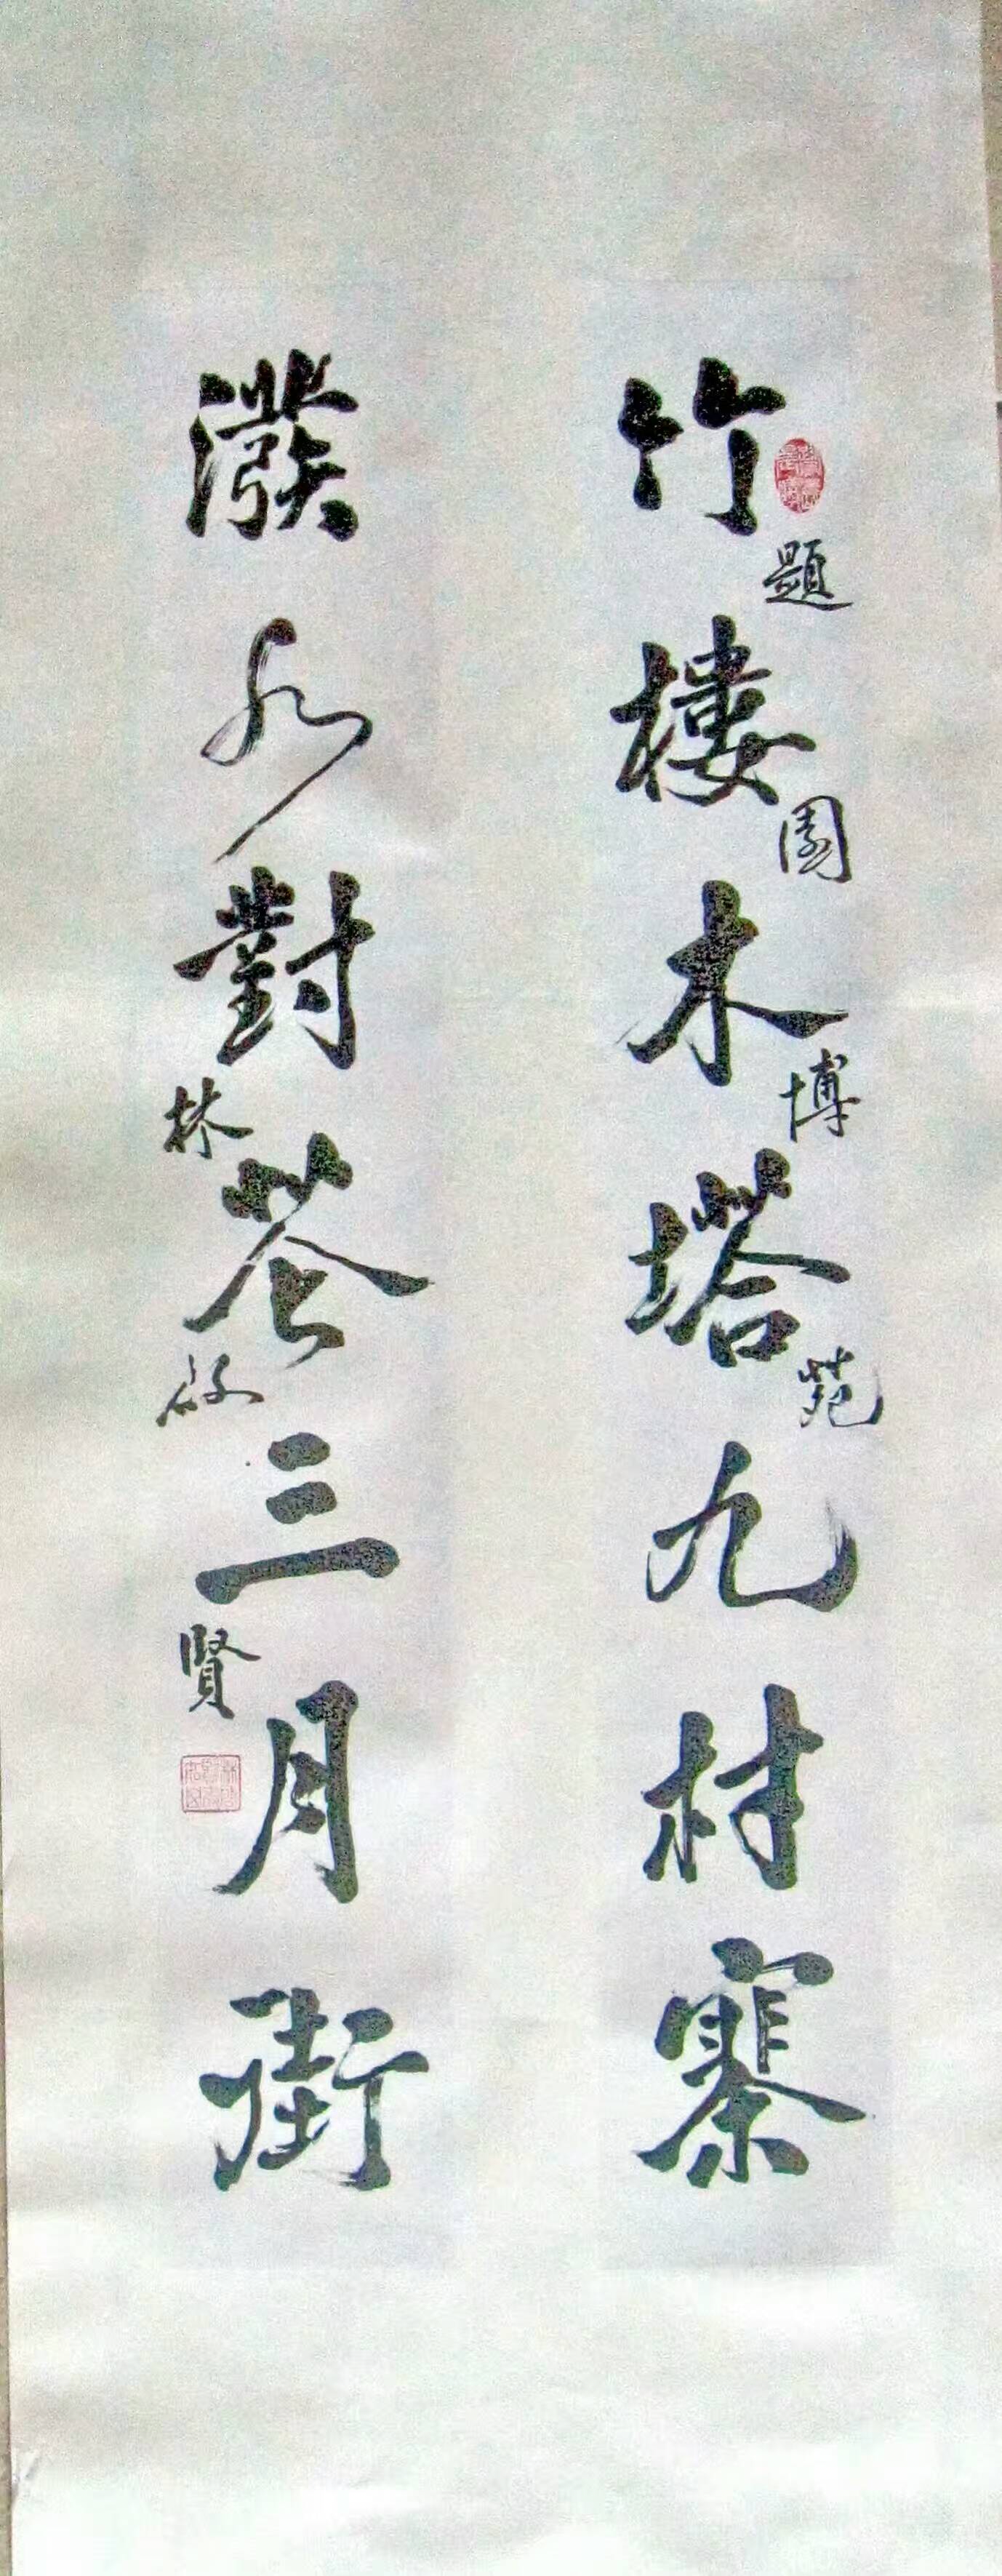 竹樓木塔九村寨
題園博苑
潑水對蒼三月街
林啟賢